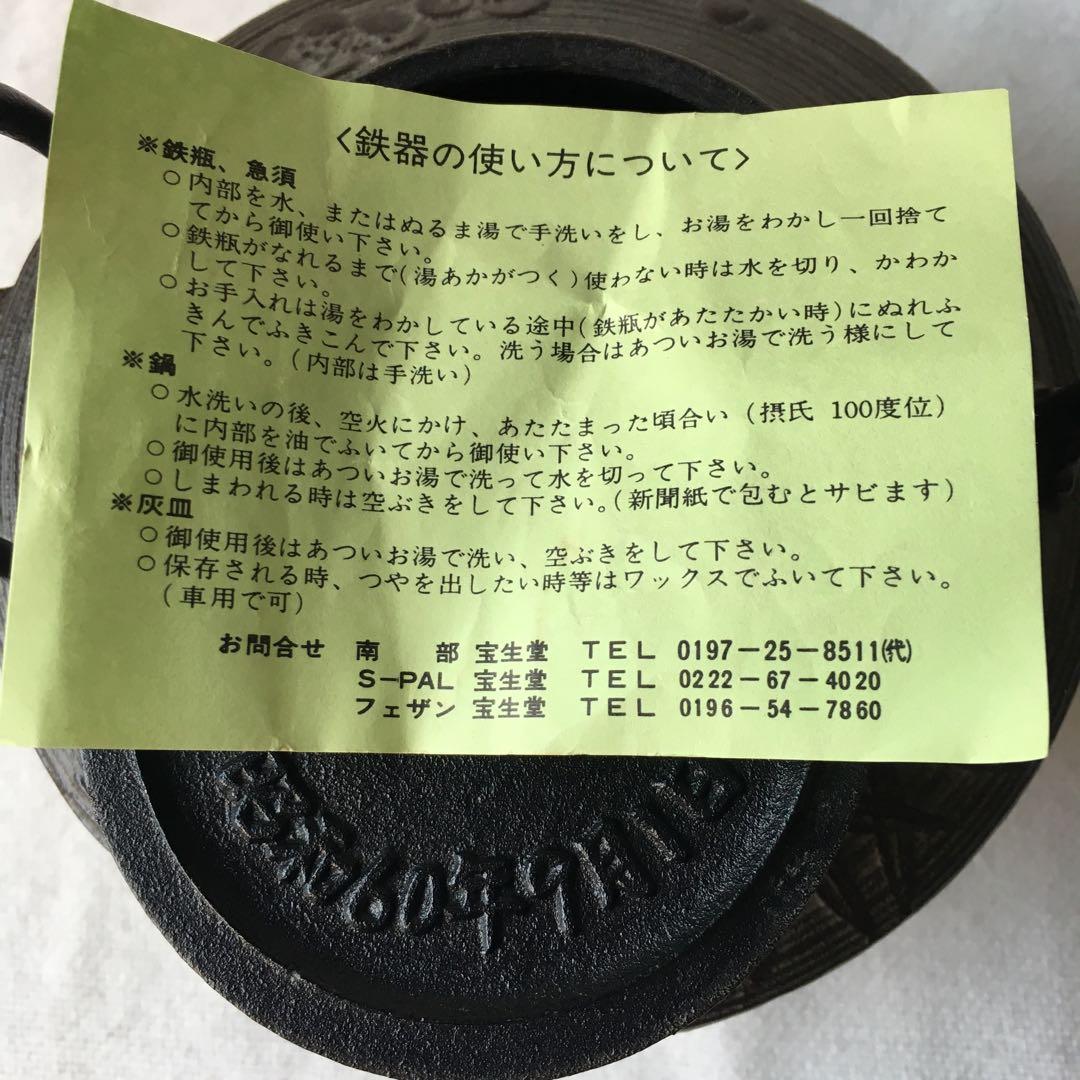 <鉄器の使い方について>
※鉄瓶、急須
○内部を水、またはぬるま湯で手洗いをし、お湯をわかし一回捨て
てから御使い下さい。
○鉄瓶がなれるまで(湯あかがつく)使わない時は水を切り、かわか
して下さい。
○お手入れは湯をわかしている途中(鉄瓶があたたかい時)にぬれふ
きんでふきこんで下さい。洗う場合はあついお湯で洗う様にして
下さい。(内部は手洗い)
※鍋
○水洗いの後、空火にかけ、あたたまった頃合い(摂氏 100度位)
に内部を油でふいてから御使い下さい。
○御使用後はあついお湯で洗って水を切って下さい。
○しまわれる時は空ぶきをして下さい。(新聞紙で包むとサビます)
※灰皿
○御使用後はあついお湯で洗い、空ぶきをして下さい。
○保存される時、つやを出したい時等はワックスでふいて下さい。
(車用で可)
お問合せ 南 部 宝生堂 TEL 0197-25-8511㈹
S-PAL 宝生堂 TEL 0222-67-4020
フェザン 宝生堂 TEL 0196-54-7860
昭和60年9月1日